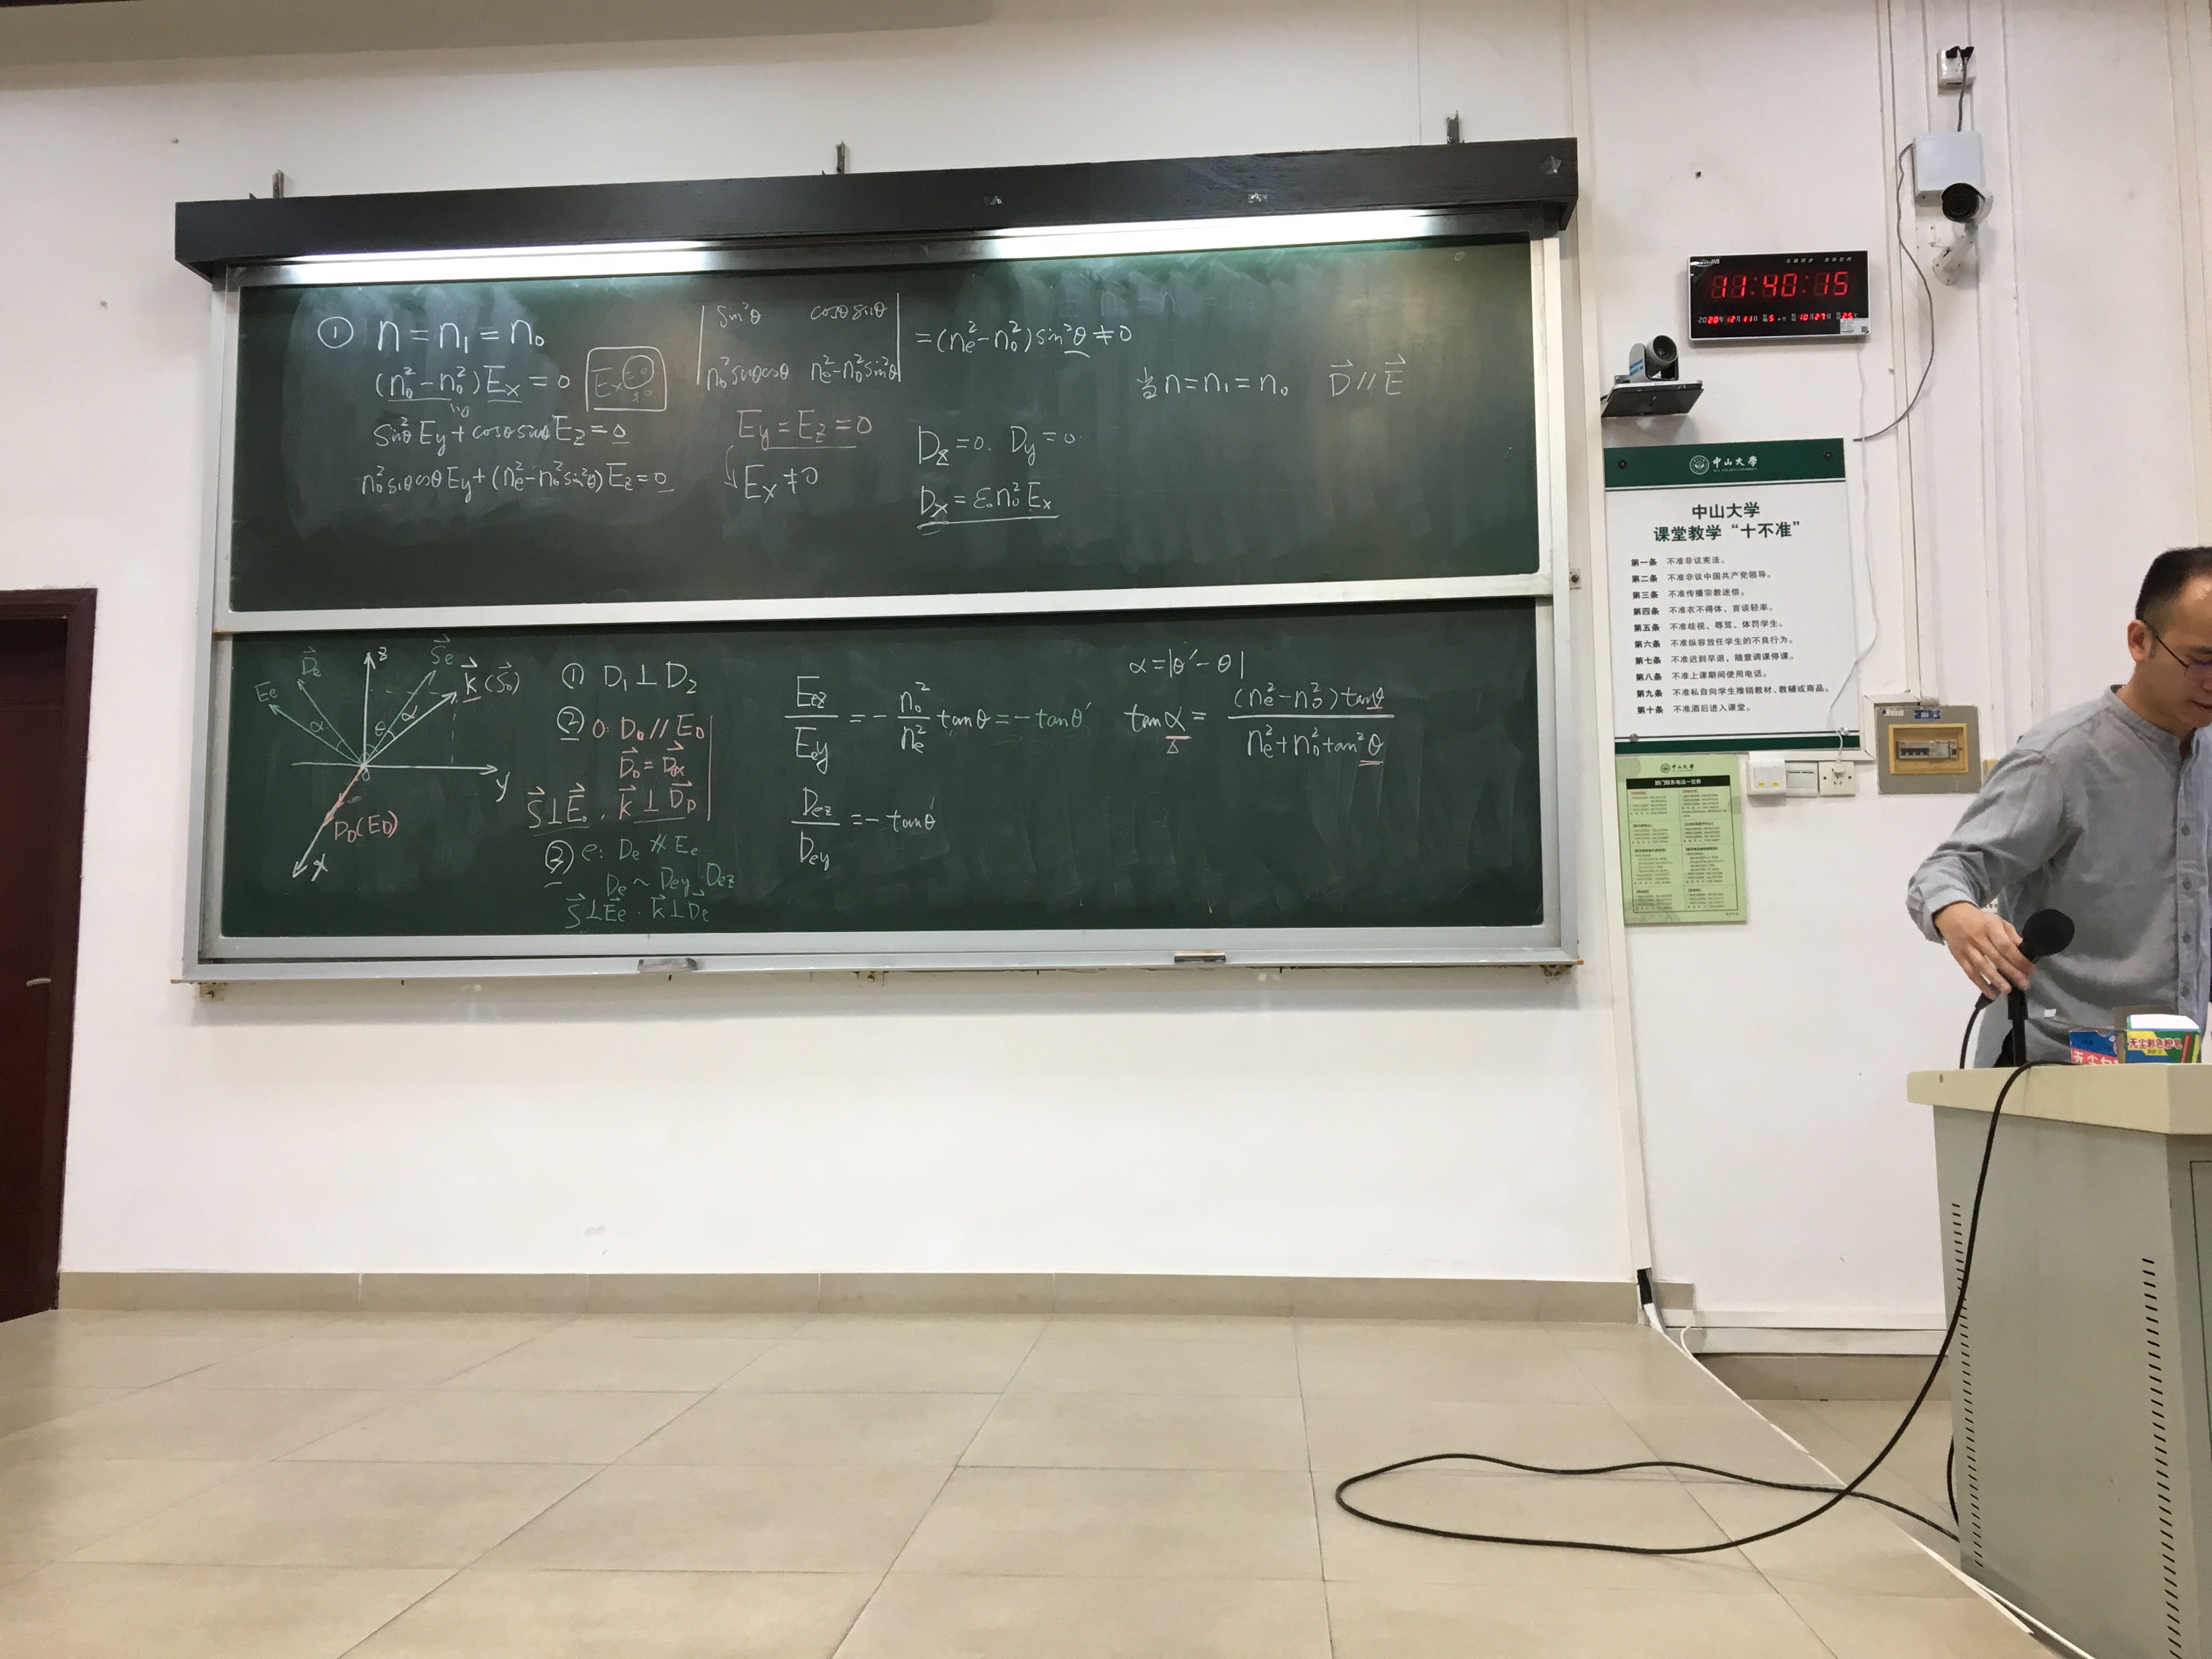 ① n = n₁ = n₀
(n₀² − n₀²)Eₓ = 0
sin²θ E_y + cosθ sinθ E_z = 0
n₀² sinθ cosθ E_y + (nₑ² − n₀² sin²θ) E_z = 0
| sin²θ cosθ sinθ |
| n₀² sinθ cosθ nₑ² − n₀² sin²θ | = (nₑ² − n₀²) sin²θ ≠ 0
E_y = E_z = 0
Eₓ ≠ 0
D_z = 0. D_y = 0.
Dₓ = ε₀n₀²Eₓ
当 n = n₁ = n₀ D⃗ // E⃗
Eₑ
D⃗ₑ
z
S⃗ₑ
k⃗ (S⃗₀)
α
θ
α
y
D₀(E₀)
x
① D₁ ⊥ D₂
② o: D₀ // E₀
D⃗₀ = D⃗₀ₓ
S⃗ ⊥ E⃗₀ . k⃗ ⊥ D⃗₀
③ e: Dₑ ∦ Eₑ
Dₑ ~ D_ey D_ez
S⃗ ⊥ E⃗ₑ . k⃗ ⊥ D⃗ₑ
E_ez / E_ey = − n₀² / nₑ² tanθ = − tanθ′
D_ez / D_ey = − tanθ′
α = |θ′ − θ|
tanα = (nₑ² − n₀²) tanθ / nₑ² + n₀² tan²θ
11:40:15
2020年12月11日
中山大学
中山大学
课堂教学“十不准”
第一条 不准非议宪法。
第二条 不准非议中国共产党领导。
第三条 不准传播宗教迷信。
第四条 不准衣不得体，言谈轻率。
第五条 不准歧视、辱骂、体罚学生。
第六条 不准纵容放任学生的不良行为。
第七条 不准迟到早退，随意调课停课。
第八条 不准上课期间使用电话。
第九条 不准私自向学生推销教材、教辅或商品。
第十条 不准酒后进入课堂。
中山大学
部门联系电话一览表
无尘彩色粉笔